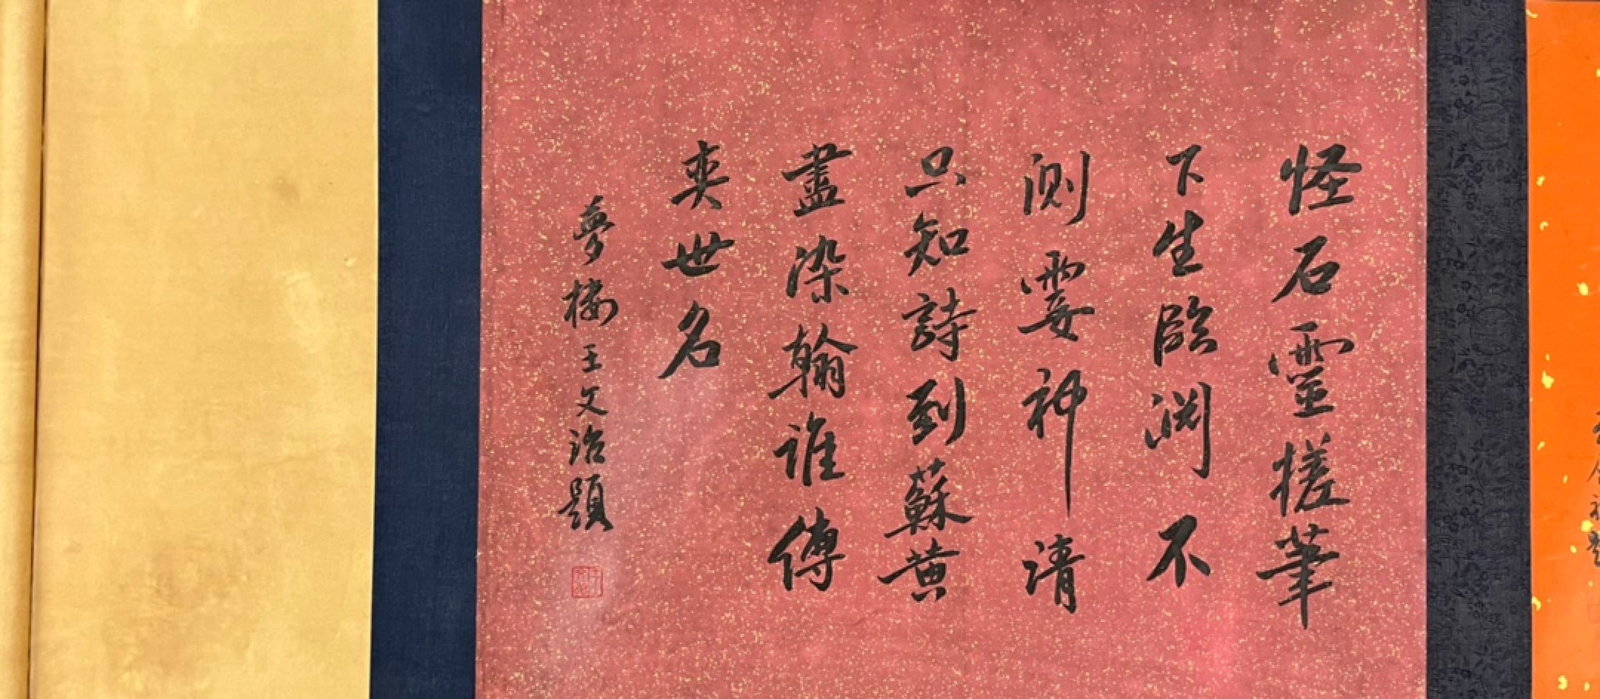 怪石靈槎筆
下生臨渊不
測要神清
只知詩到蘇黄
盡染翰誰傳
奕世名
夢樓王文治題